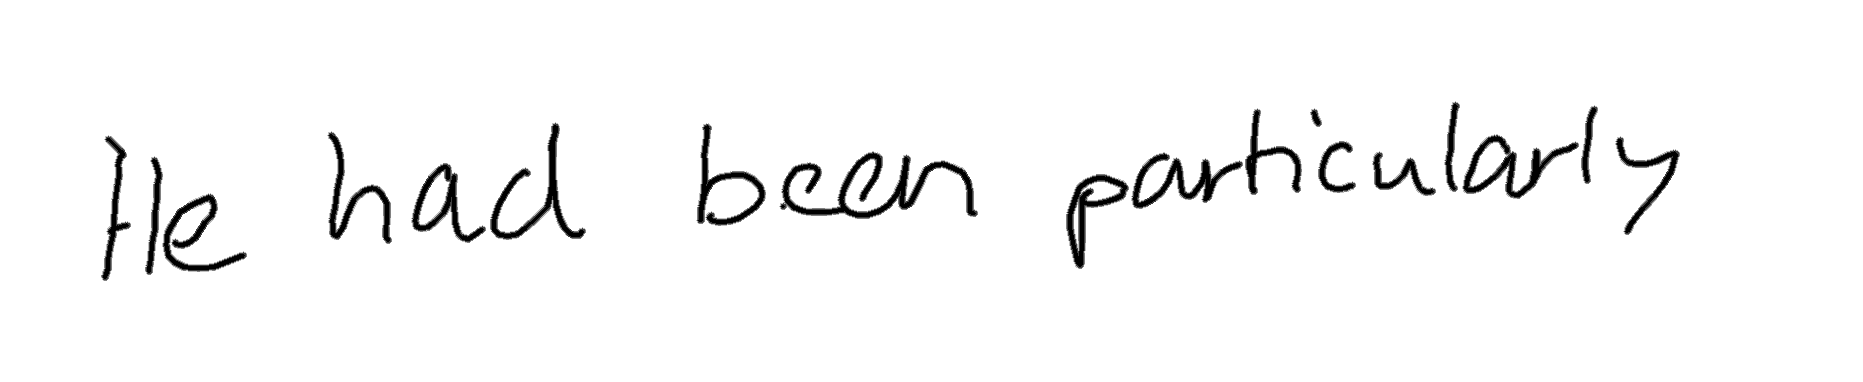 He had been particularly